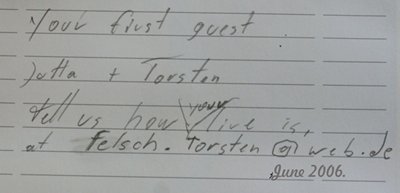 Your first guest
Jutta + Torsten
tell us how your live is,
at felsch.Torsten @ web.de
June 2006.